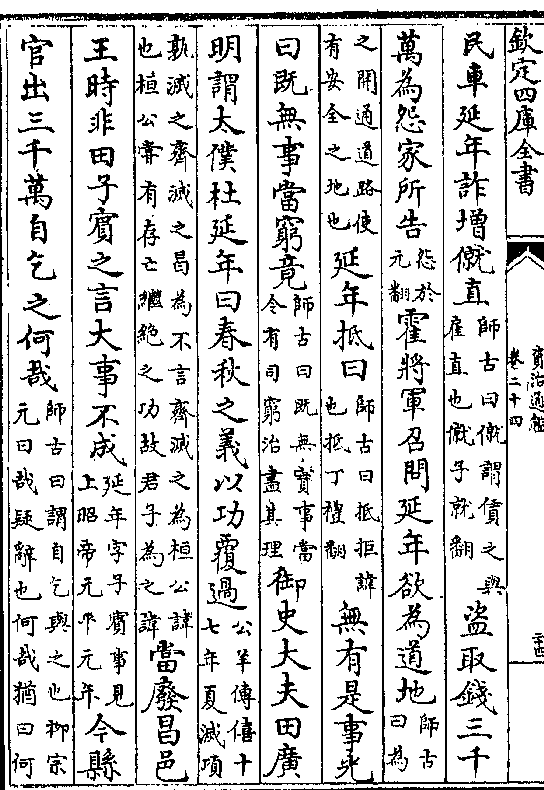 欽定四庫全書
資治通鑑
卷二十四
民車延年詐增僦直
師古曰僦謂債之與
雇直也僦子就翻
盜取錢三千
萬為怨家所告
怨於
元翻
霍將軍召問延年欲為道地
師古
曰為
之開通道路使
有安全之地也
延年抵曰
師古曰抵拒諱
也抵丁禮翻
無有是事光
曰既無事當窮竟
師古曰既無實事當
令有司窮治盡其理
御史大夫田廣
明謂太僕杜延年曰春秋之義以功覆過
公羊傳僖十
七年夏滅項
孰滅之齊滅之曷為不言齊滅之為桓公諱
也桓公嘗有存亡繼絶之功故君子為之諱
當廢昌邑
王時非田子賓之言大事不成
延年字子賓事見
上昭帝元平元年
今縣
官出三千萬自乞之何哉
師古曰謂自乞與之也栁宗
元曰哉疑辭也何哉猶曰何